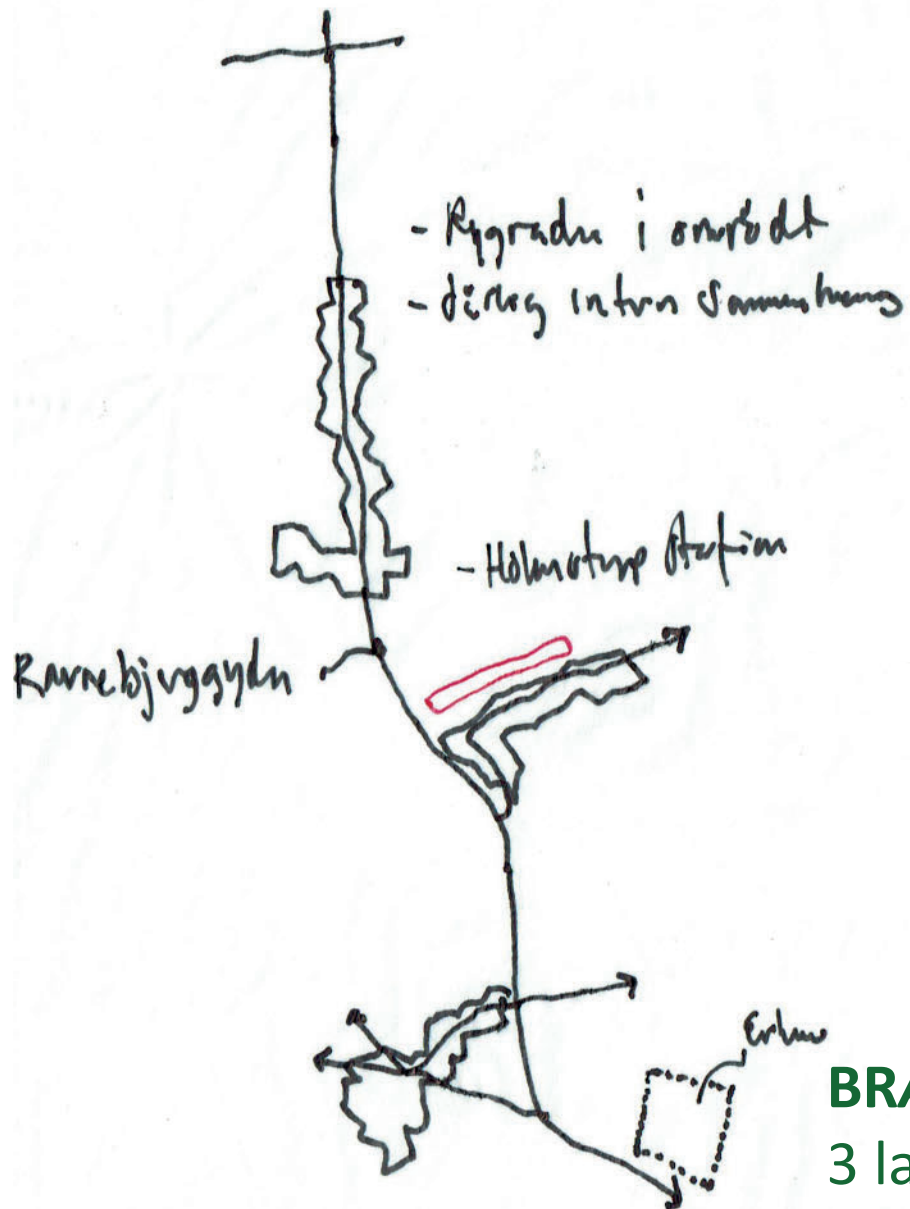 - Rygraden i området
- dårlig intern sammenhæng
- Holmstrup Station
Ravnebjerggyden
Erhverv
BRA
3 la